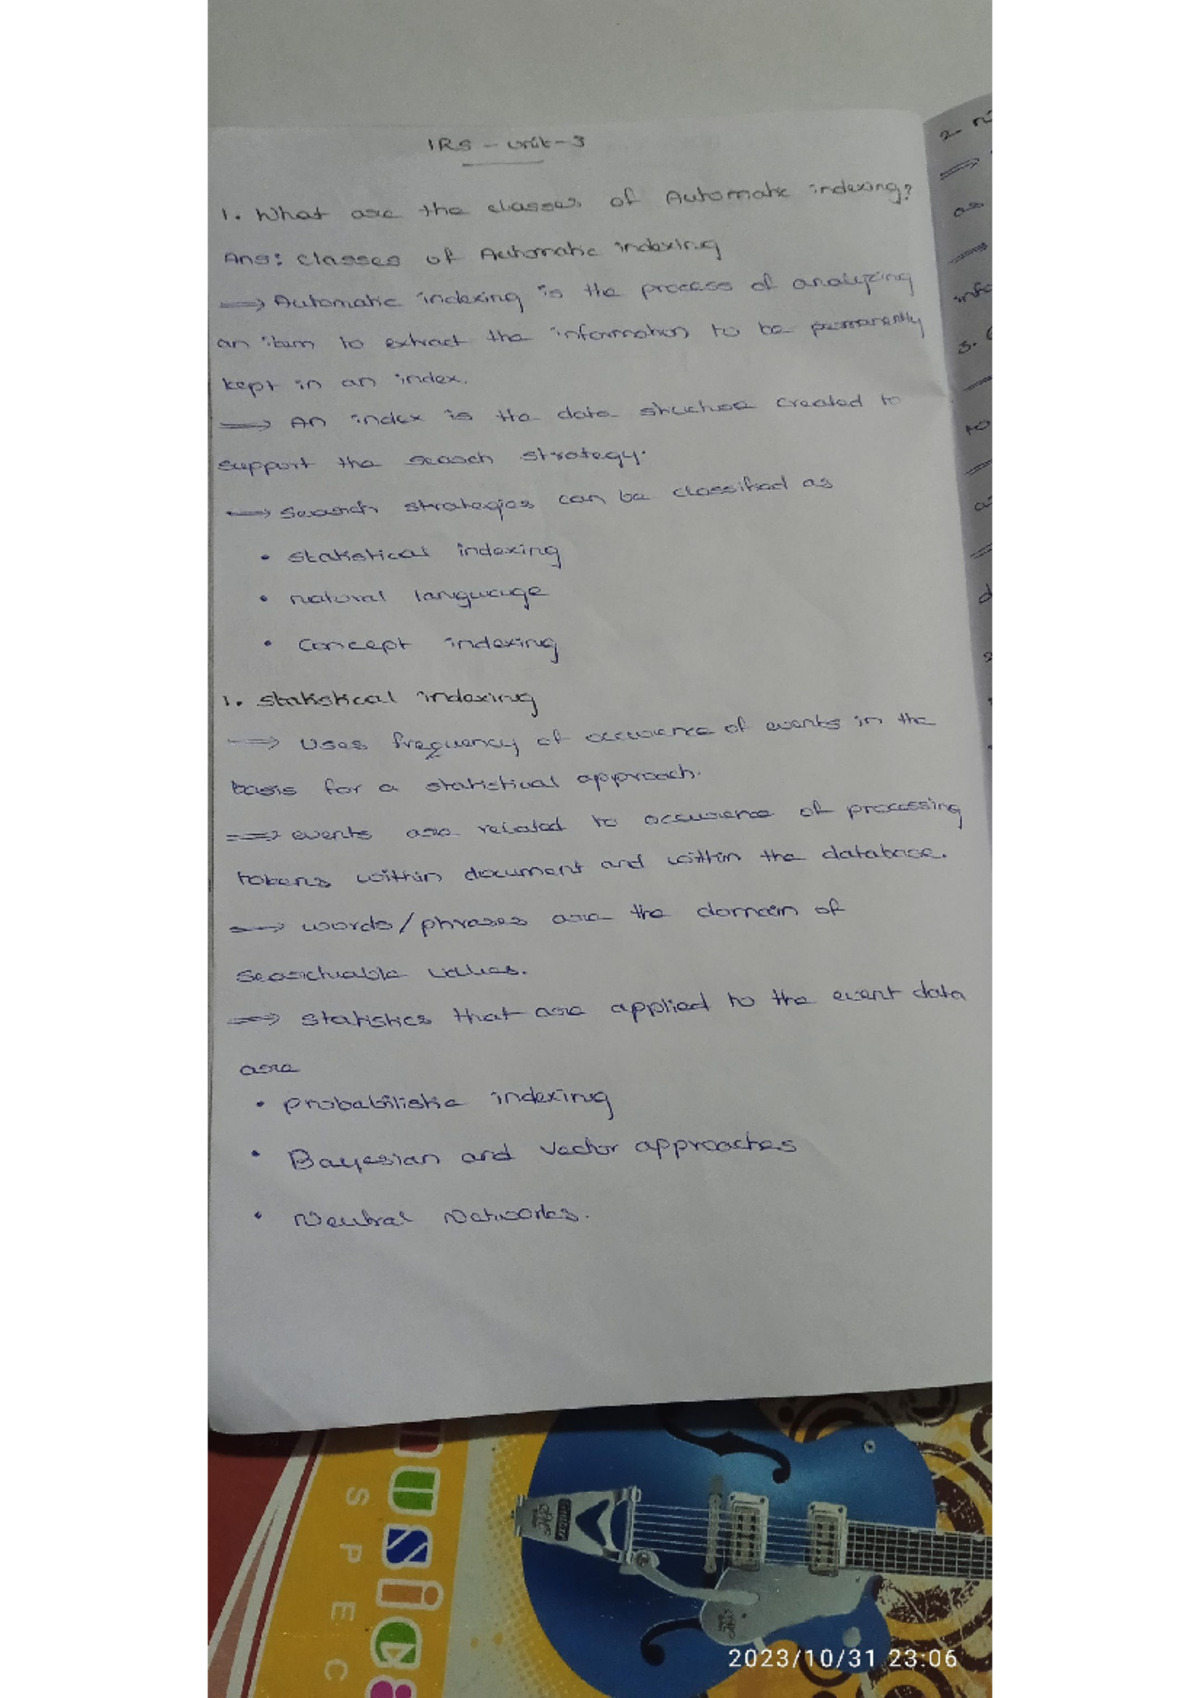 IRS - Unit - 3
1. What are the classes of Automatic indexing?
Ans: Classes of Automatic indexing
⟹ Automatic indexing is the process of analyzing
an item to extract the information to be permanently
kept in an index.
⟹ An index is the data structure created to
support the search strategy.
⟹ Search strategies can be classified as
• statistical indexing
• natural language
• concept indexing
1. statistical indexing
⟹ Uses frequency of occurence of events in the
basis for a statistical approach.
⟹ events are related to occurence of processing
tokens within document and within the database.
⟹ words/phrases are the domain of
searchable values.
⟹ statistics that are applied to the event data
are
• probabilistic indexing
• Bayesian and vector approaches
• Neutral Networks.
2
⟹
as
⟹
3.
MUSIC
SPEC
2023/10/31 23:06